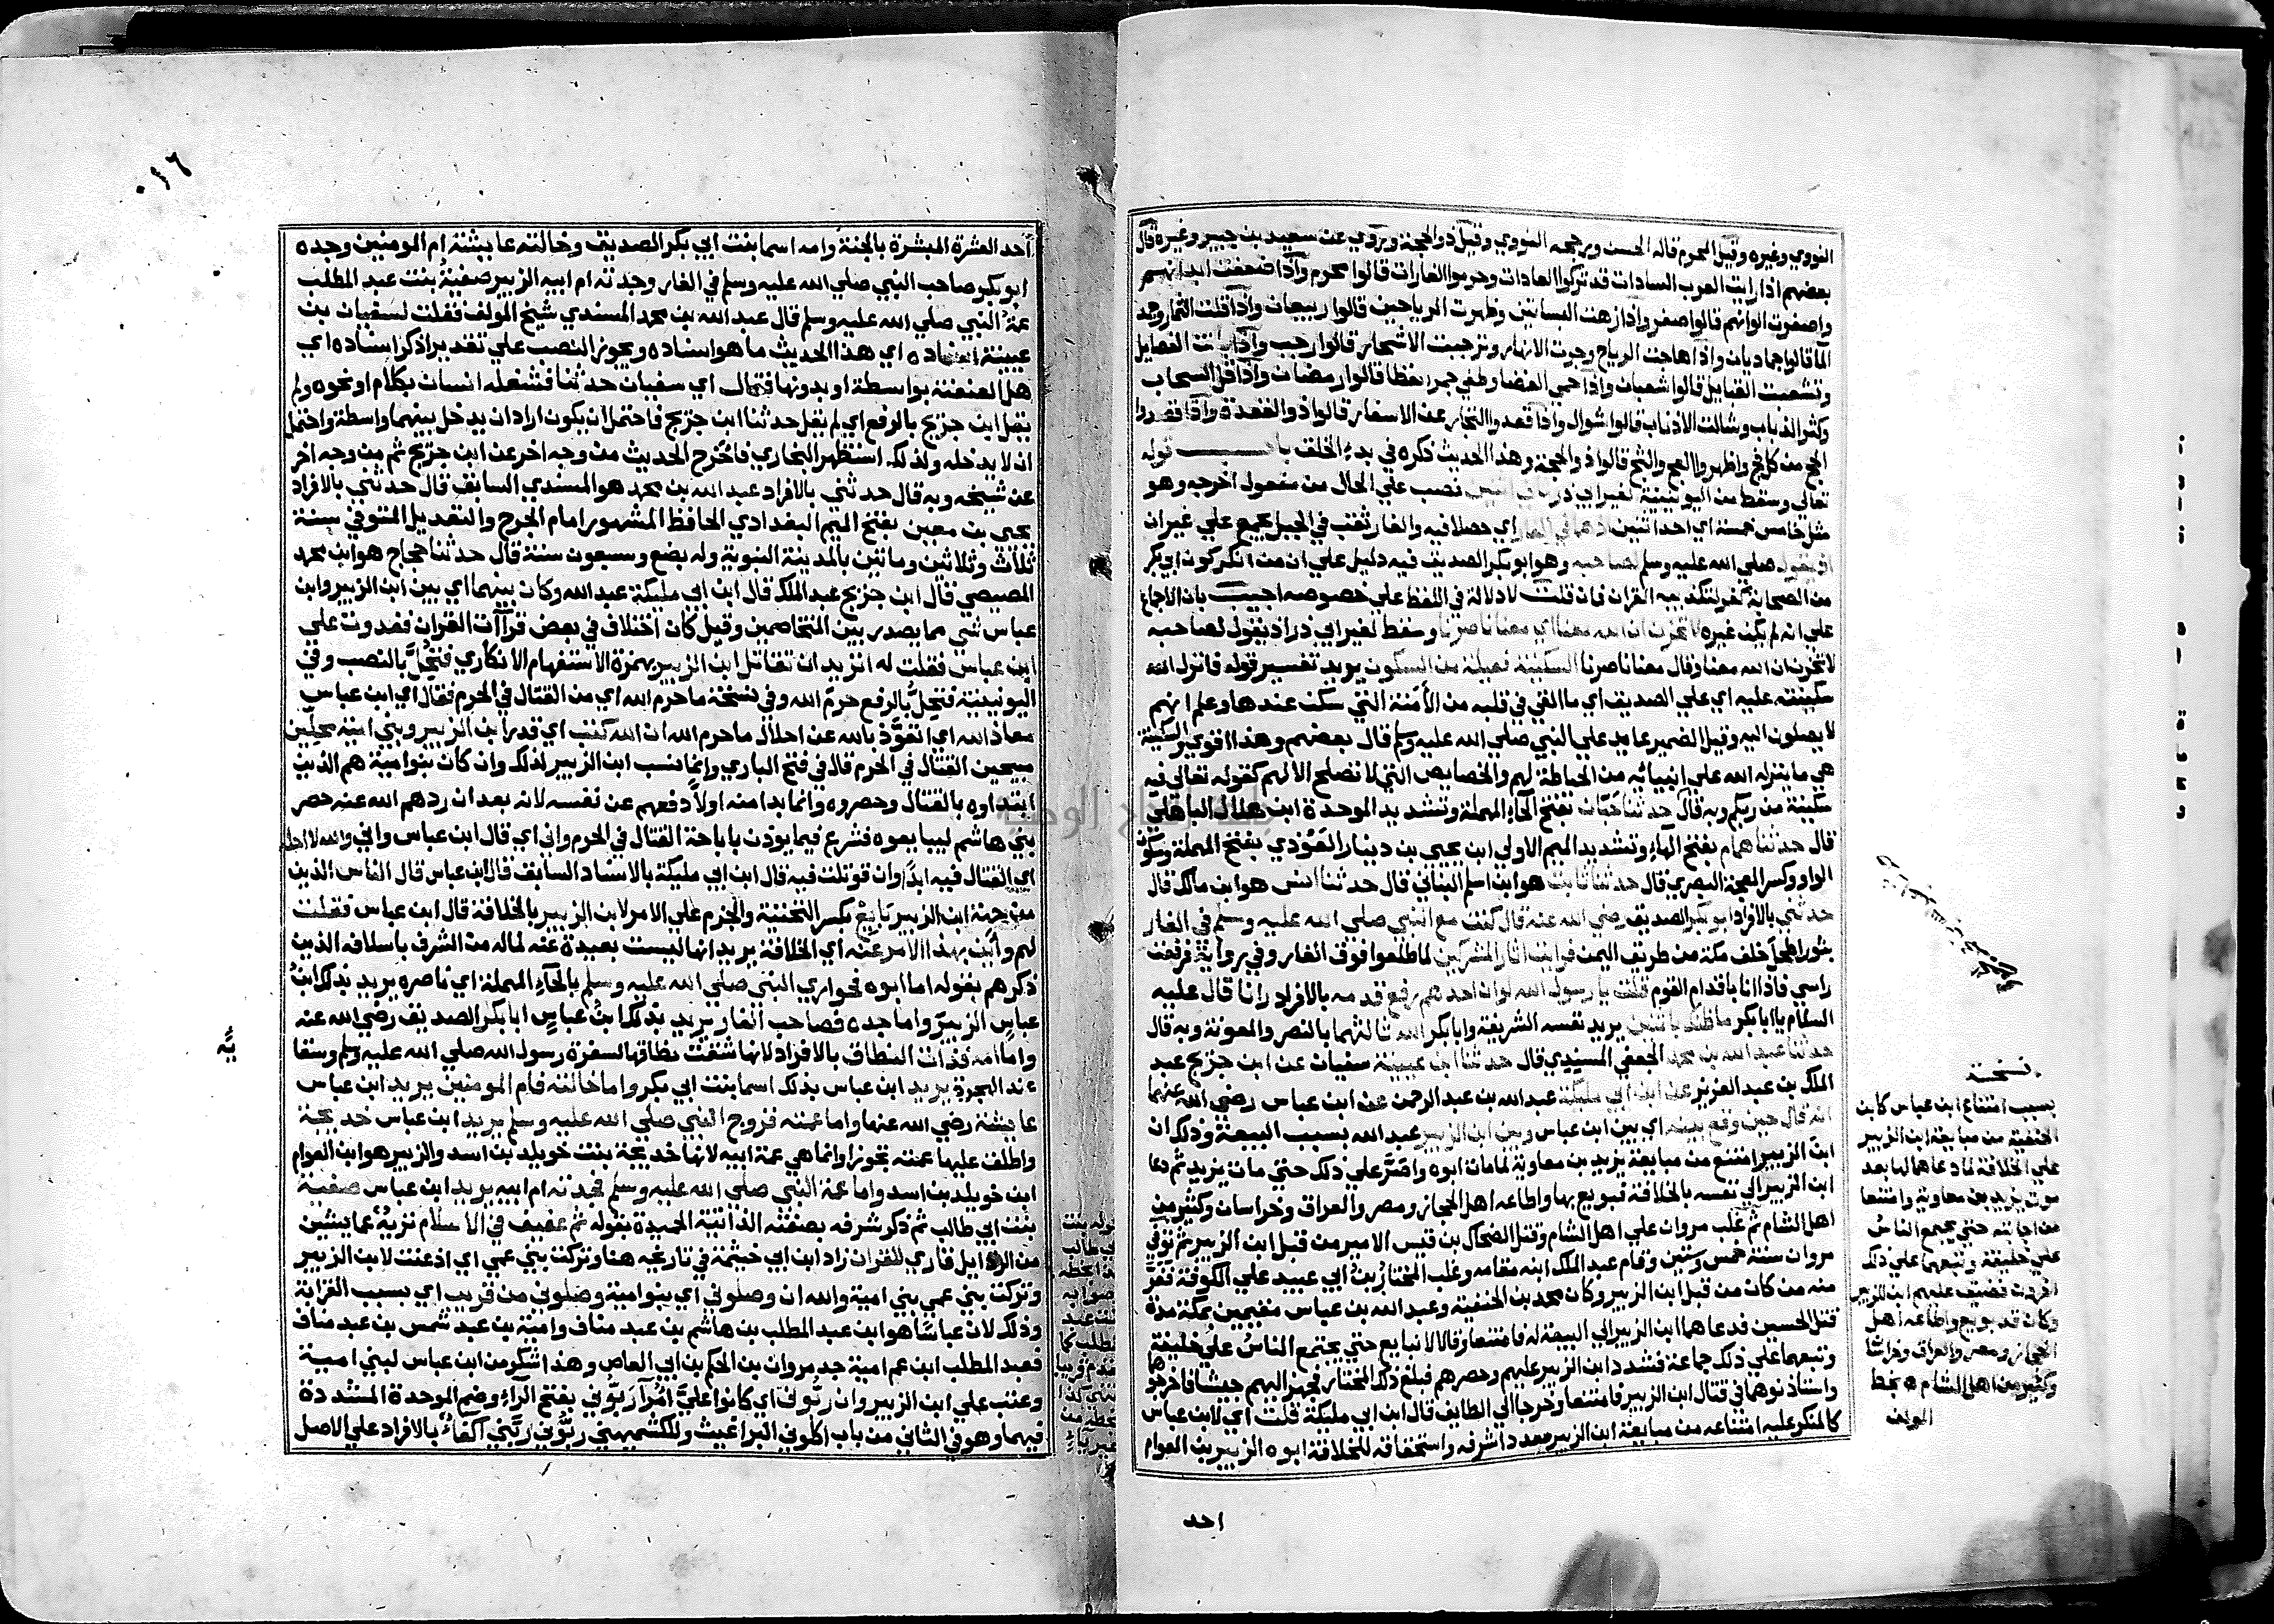 النووي وغيره وقيل المحرم قاله الحسن ورجحه النووي وقيل ذو الحجة وروي عن سعيد بن جبير وغيره قال
بعضهم اذا رايت العرب السادات قد تركوا العادات وحرموا الغارات قالوا محرم واذا ضعفت ابدانهم
واصفرت الوانهم قالوا صفر واذا زهت البساتين وظهرت الرياحين قالوا ربيعان واذا قلت الثمار وجمد
الما قالوا جماديان واذا هاجت الرياح وجرت الانهار وترجبت الاشجار قالوا رجب واذا بانت الفصايل
وتشعبت القبايل قالوا شعبان واذا حمي الفضا وطغي جمر الغظا قالوا رمضان واذا قل السحاب
وكثر الذباب وشالت الاذناب قالوا شوال واذا قعدوا التجار عن الاسفار قالوا ذو القعدة واذا قصدوا
الحج من كل فج واظهروا العج والثج قالوا ذو الحجة وهذا الحديث ذكره في بدء الخلق باب قوله
تعالي وسقط من اليونينية لغير ابي ذر ثاني اثنين نصب علي الحال من مفعول اخرجه وهو
مثل خامس خمسة اي احد اثنين اذ هما في الغار اي حصلا فيه والغار ثقب في الجبل يجمع علي غيران
اذ يقول صلي الله عليه وسلم لصاحبه وهو ابو بكر الصديق فيه دليل علي ان من انكر كون ابي بكر
من الصحابة كفر لتكذيبه القران فان قلت لا دلالة في اللفظ علي خصوصه اجيب بان الاجماع
علي انه لم يكن غيره لا تحزن ان الله معنا اي معنا ناصرنا وسقط لغير ابي ذر اذ يقول لصاحبه
لا تحزن ان الله معنا وقال معنا ناصرنا السكينة فعيلة من السكون يريد تفسير قوله فانزل الله
سكينته عليه اي علي الصديق اي ما القي في قلبه من الأمَنة التي سكن عندها وعلم انهم
لا يصلون اليه وقيل الضمير عايد علي النبي صلي الله عليه وسلم قال بعضهم وهذا اقوي والسكينة
هي ما ينزله الله علي انبيائه من الحياطة لهم والخصايص التي لا تصلح الا لهم كقوله تعالي فيه
سكينة من ربكم وبه قال حدثنا حبان بفتح الحاء المهملة وتشديد الموحدة ابن هلال الباهلي
قال حدثنا همام بفتح الهاء وتشديد الميم الاولي ابن يحيي بن دينار العَوْذي بفتح المهملة وسكون
الواو وكسر المعجمة البصري قال حدثنا ثابت هو ابن اسلم البناني قال حدثنا انس هو ابن مالك قال
حدثني بالافراد ابو بكر الصديق رضي الله عنه قال كنت مع النبي صلي الله عليه وسلم في الغار
بثور اطحل خلف مكة من طريق اليمن فرايت اثار المشركين لما طلعوا فوق الغار وفي رواية فرفعت
راسي فاذا انا باقدام القوم قلت يا رسول الله لو ان احدهم رفع قدمه بالافراد رانا قال عليه
السلام يا ابا بكر ما ظنك باثنين يريد نفسه الشريفة وابا بكر الله ثالثهما بالنصر والمعونة وبه قال
حدثنا عبد الله بن محمد الجعفي المسنِدي قال حدثنا ابن عيينة سفيان عن ابن جريج عبد
الملك بن عبد العزيز عن ابن ابي مليكة عبد الله بن عبد الرحمن عن ابن عباس رضي الله عنهما
انه قال حين وقع بينه اي بين ابن عباس وبين ابن الزبير عبد الله بسبب البيعة وذلك ان
ابن الزبير امتنع من مبايعة يزيد بن معاوية لما مات ابوه واصَرَّ علي ذلك حتي مات يزيد ثم دعا
ابن الزبير الي نفسه بالخلافة فبويع بها واطاعه اهل الحجاز ومصر والعراق وخراسان وكثير من
اهل الشام ثم غلب مروان علي اهل الشام وقتل الضحاك بن قيس الامير من قبل ابن الزبير ثم توفي
مروان سنة خمس وستين وقام عبد الملك ابنه مقامه وغلب المختارُ بنُ ابي عبيد علي الكوفة ففَرَّ
منه من كان من قبل ابن الزبير وكان محمد بن الحنفية وعبد الله بن عباس مقيمين بمكة مدة
قتل الحسين فدعاهما ابن الزبير الي البيعة له فامتنعا وقالا لا نبايع حتي يجتمع الناسُ علَي خليفة
وتبعهما علي ذلك جماعة فشدد ابن الزبير عليهم وحصرهم فبلغ ذلك المختار فجهز اليهم جيشا فاخرجوهما
واستاذنوهما في قتال ابن الزبير فامتنعا وخرجا الي الطايف قال ابن ابي مليكة قلت اي لابن عباس
كالمنكر عليه امتناعه من مبايعة ابن الزبير معددا شرفه واستحقاقه للخلافة ابوه الزبير بن العوام
احد
نسخة
بسبب امتناع ابن عباس كابن
الحنفية من مبايعة ابن الزبير
علي الخلافة لما دعاهما لها بعد
موت يزيد بن معاوية وامتنعا
من اجابته حتي يجتمع الناسُ
علي خليفة وتبعهما علي ذلك
وكان قد بويع واطاعه اهل
الحجاز ومصر والعراق وخراسان
وكثير من اهل الشام ه بخط
المولف
٠١٦
أحد العشرة المبشرة بالجنة وامه اسما بنت ابي بكر الصديق وخالته عايشة ام المومنين وجده
ابو بكر صاحب النبي صلي الله عليه وسلم في الغار وجدته ام ابيه الزبير صفيةُ بنت عبد المطلب
عمةُ النبي صلي الله عليه وسلم قال عبد الله بن محمد المسندي شيخ المولف فقلت لسفيان بن
عيينة اسناده اي هذا الحديث ما هو اسناده ويجوز النصب علي تقدير اذكر اسناده اي
هل العنعنة بواسطة او بدونها فقال اي سفيان حدثنا فشغله انسان بكلام او نحوه ولم
يقل ابن جريج بالرفع اي لم يقل حدثنا ابن جريج فاحتمل ان يكون اراد ان يدخل بينهما واسطة واحتمل
ان لا يدخله ولذلك استظهر البخاري فاخرج الحديث من وجه اخر عن ابن جريج ثم من وجه اخر
عن شيخه وبه قال حدثني بالافراد عبد الله بن محمد هو المسندي السابق قال حدثني بالافراد
يحيي بن معين بفتح الميم البغدادي الحافظ المشهور امام الجرح والتعديل المتوفي سنة
ثلاث وثلاثين وماتين بالمدينة النبوية وله بضع وسبعون سنة قال حدثنا حجاج هو ابن محمد
المصيصي قال ابن جريج عبد الملك قال ابن ابي مليكة عبد الله وكان بينهما اي بين ابن الزبير وابن
عباس شي مما يصدر بين المتخاصمين وقيل كان اختلاف في بعض قراآت القران فغدوت علي
ابن عباس فقلت له اتريد ان تقاتل ابن الزبير بهمزة الاستفهام الانكاري فتُحِلَّ بالنصب وفي
اليونينية فتحِلُّ بالرفع حرم الله وفي نسخة ما حرم الله اي من القتال في الحرم فقال اي ابن عباس
معاذ الله اي اتعوَّذ بالله عن احلال ما حرم الله ان الله كتب اي قدر ابن الزبير وبني امية محلين
مبيحين القتال في الحرم قال في فتح الباري وانما نسب ابن الزبير لذلك وان كان بنو امية هم الذين
ابتداوه بالقتال وحصروه وانما بدا منه اولاً دفعهم عن نفسه لانه بعد ان ردهم الله عنه حصر
بني هاشم ليبايعوه فشرع فيما يوذن باباحة القتال في الحرم واني اي قال ابن عباس واني والله لا احله
اي القتال فيه ابداً وان قوتلت فيه قال ابن ابي مليكة بالاسناد السابق قال ابن عباس قال الناس الذين
من جهة ابن الزبير بَايِعْ بكسر التحتية والجزم علي الامر لابن الزبير بالخلافة قال ابن عباس فقلت
لهم واين بهذا الامر عنه اي الخلافة يريد انها ليست بعيدة عنه لماله من الشرف باسلافه الذين
ذكرهم بقوله اما ابوه فحواري النبي صلي الله عليه وسلم بالحآء المهملة اي ناصره يريد بذلك ابنُ
عباسٍ الزبيرَ واما جده فصاحب الغار يريد بذلك ابنُ عباسٍ ابا بكر الصديق رضي الله عنه
واما امه فذات النطاق بالافراد لانها شقت نطاقها لسفرة رسول الله صلي الله عليه وسلم وسقا
ئه عند الهجرة يريد ابن عباس بذلك اسما بنت ابي بكر واما خالته فام المومنين يريد ابن عباس
عايشة رضي الله عنها واما عمته فزوج النبي صلي الله عليه وسلم يريد ابن عباس خديجة
واطلق عليها عمته تجوزا وانما هي عمة ابيه لانها خديجة بنت خويلد بن اسد والزبير هو ابن العوام
ابن خويلد بن اسد واما عمة النبي صلي الله عليه وسلم فجدته ام ابيه يريد ابن عباس صفية
بنت ابي طالب ثم ذكر شرفه بصفته الذاتية الحميدة بقوله ثم عفيف في الاسلام نزيهٌ عما يشين
من الرذايل قاري للقران زاد ابن ابي خيثمة في تاريخه هنا وتركت بني عمي اي اذعنت لابن الزبير
وتركت بني عمي بني امية والله ان وصلوني اي بنو امية وصلوني من قريب اي بسبب القرابة
وذلك لان عباسًا هو ابن عبد المطلب بن هاشم بن عبد مناف وامية بن عبد شمس بن عبد مناف
فعبد المطلب ابن عم امية جد مروان بن الحكم بن ابي العاص وهذا شكر من ابن عباس لبني امية
وعتب علي ابن الزبير وان ربُّوني اي كانوا عليَّ امرآ ربُّوني بفتح الرآء وضم الموحدة المشددة
فيهما وهو في الثاني من باب اكلوني البراغيث وللكشميهني ربُّوني ربَّني اكفاءٌ بالافراد علي الاصل